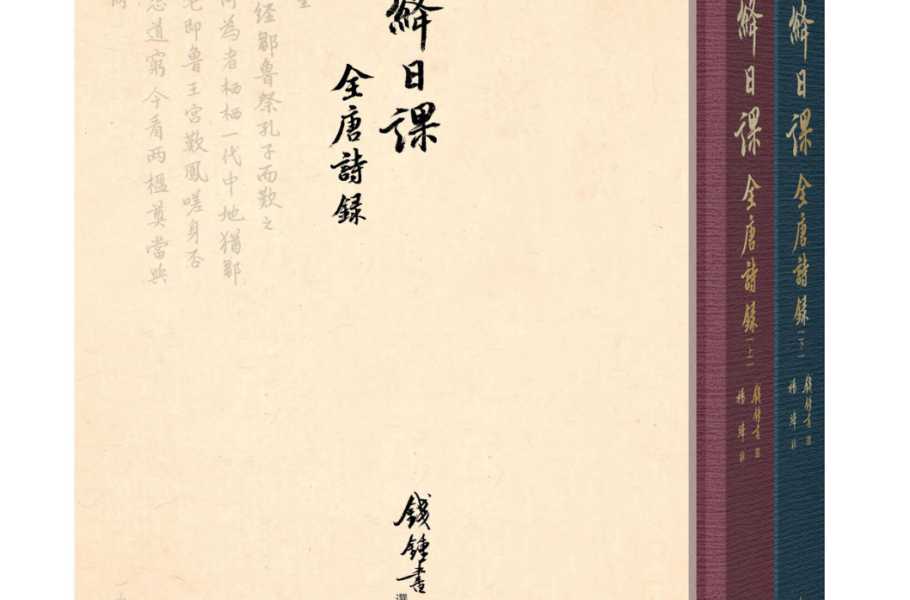 絳日課
全唐詩録
经鄒魯祭孔子而歎之
何為者栖栖一代中地猶鄹
宅即魯王宮歎鳳嗟身否
怨道窮今看兩楹奠當與
錢鍾書
選
絳日課
全唐詩録(上)
錢鍾書 選
楊絳 録
絳日課
全唐詩録(下)
錢鍾書 選
楊絳 録